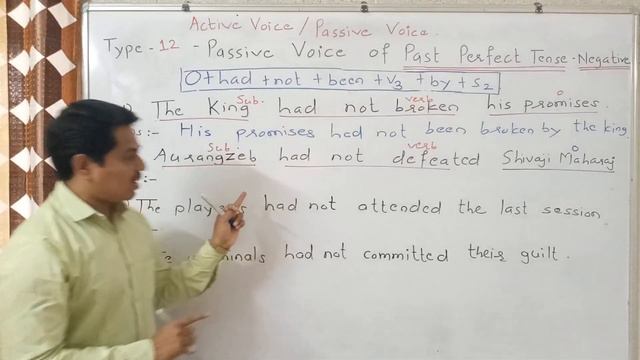 Active Voice / Passive Voice.
Type - 12 - Passive Voice of Past Perfect Tense - Negative
O + had + not + been + V3 + by + S2
Sub. verb O
The King had not broken his promises.
:- His promises had not been broken by the king
Sub verb O
Aurangzeb had not defeated Shivaji Maharaj
:-
The had not attended the last session
had not committed their guilt.